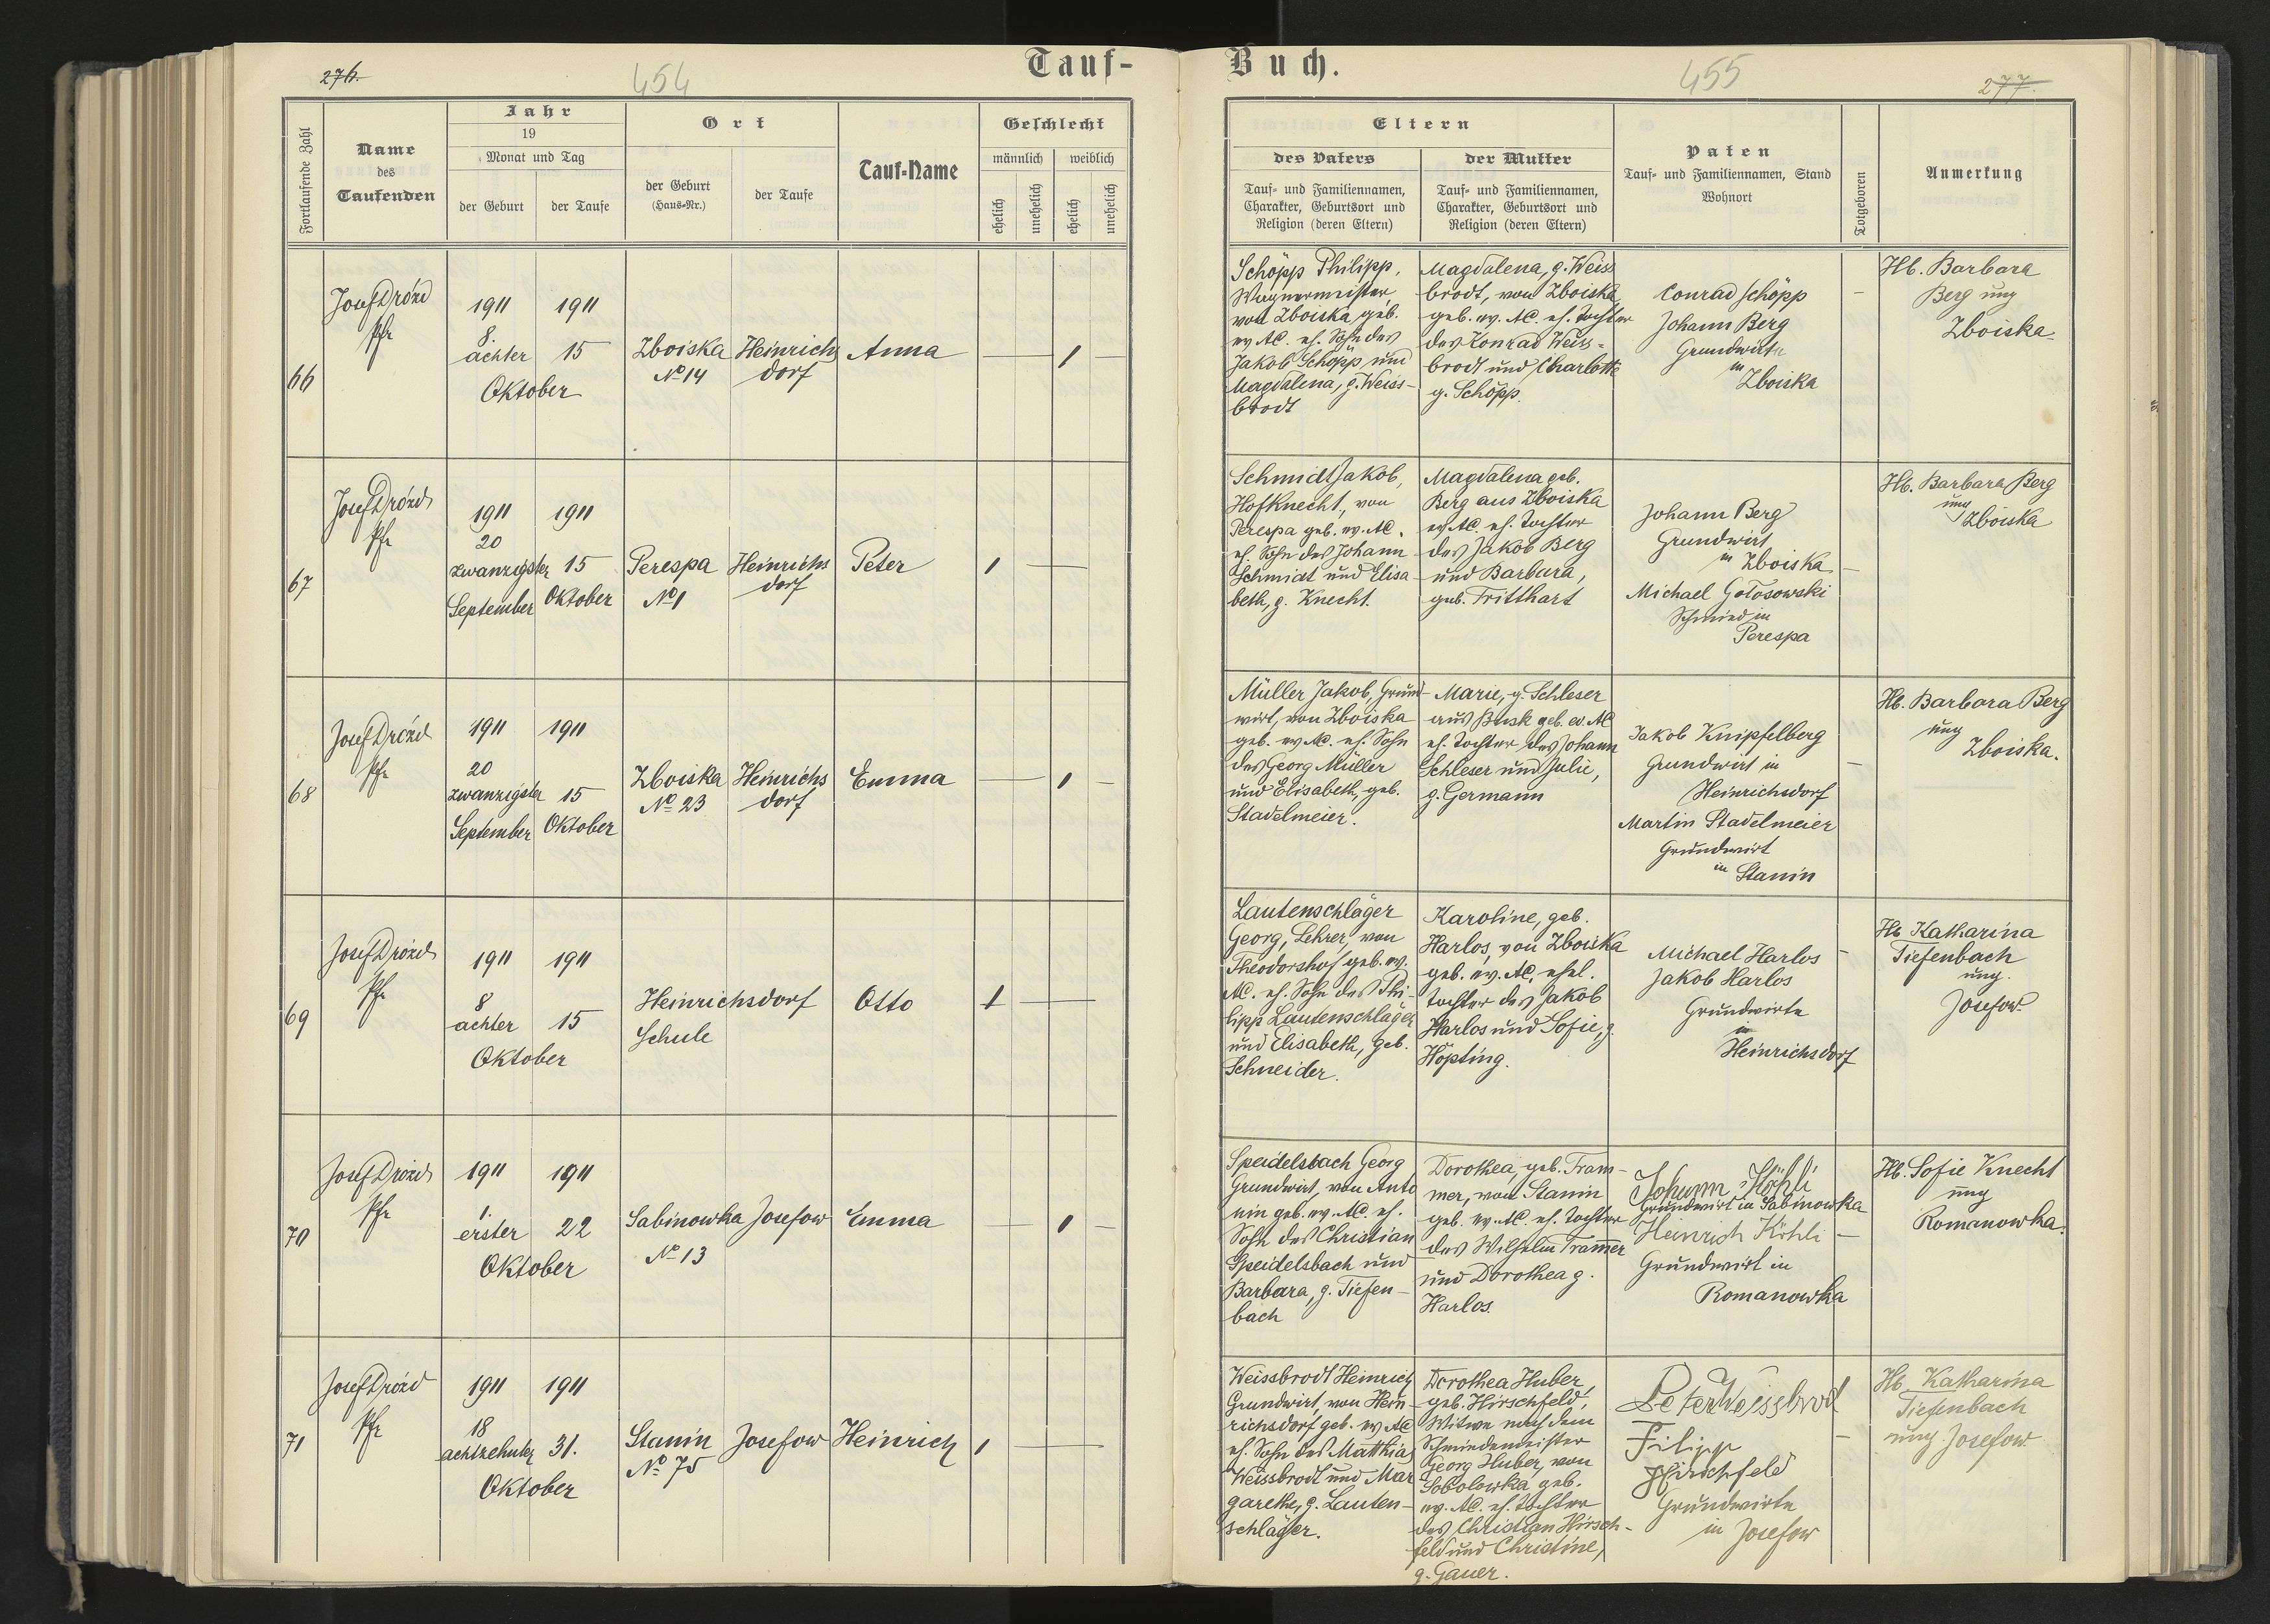 276.
454
Tauf-
Fortlaufende Zahl
Name
des
Taufenden
Jahr
19
Monat und Tag
der Geburt
der Taufe
Ort
der Geburt
(Haus-Nr.)
der Taufe
Tauf-Name
Geschlecht
männlich
weiblich
ehelich
unehelich
ehelich
unehelich
66
Josef Drózd
Pfr
1911
8.
achter
1911
15
Oktober
Zboiska
No 14
Heinrichs
dorf
Anna
— — 1 —
67
Josef Drózd
Pfr
1911
20
zwanzigster
September
1911
15
Oktober
Perespa
No 1
Heinrichs
dorf
Peter
1 — —
68
Josef Drózd
Pfr
1911
20
zwanzigster
September
1911
15
Oktober
Zboiska
No 23
Heinrichs
dorf
Emma
— — 1 —
69
Josef Drózd
Pfr
1911
8
achter
1911
15
Oktober
Heinrichsdorf
Schule
Otto
1 — —
70
Josef Drózd
Pfr
1911
1.
erster
1911
22
Oktober
Sabinowka
No 13
Josefow
Emma
— — 1 —
71
Josef Drózd
Pfr
1911
18
achtzehnter
1911
31.
Oktober
Stanin
No 75
Josefow
Heinrich
1 — —
Buch.
455
277.
Eltern
des Vaters
Tauf- und Familiennamen,
Charakter, Geburtsort und
Religion (deren Eltern)
der Mutter
Tauf- und Familiennamen,
Charakter, Geburtsort und
Religion (deren Eltern)
Paten
Tauf- und Familiennamen, Stand
Wohnort
Totgeboren
Anmerkung
Schöpp Philipp,
Wagnermeister,
von Zboiska geb.
ev AC. eh. Sohn des
Jakob Schöpp und
Magdalena, g. Weiss-
brodt
Magdalena, g. Weiss
brodt, von Zboiska,
geb. ev. AC. eh. Tochter
des Konrad Weiss-
brodt und Charlotte
g. Schöpp.
Conrad Schöpp
Johann Berg
Grundwirte
in
Zboiska
—
Hb. Barbara
Berg ung
Zboiska
Schmidt Jakob,
Hofknecht, von
Perespa geb. ev. AC.
eh. Sohn des Johann
Schmidt und Elisa
beth, g. Knecht.
Magdalena geb.
Berg aus Zboiska
ev AC. eh. Tochter
des Jakob Berg
und Barbara,
geb. Tritthart
Johann Berg
Grundwirt
in Zboiska
Michael Gołosowski
Schmied in
Perespa
—
Hb. Barbara Berg
ung
Zboiska
Müller Jakob, Grund-
wirt, von Zboiska
geb. ev AC. eh. Sohn
des Georg Müller
und Elisabeth, geb.
Stadelmeier.
Marie, g. Schleser
aus Busk geb. ev. AC
eh. Tochter des Johann
Schleser und Julie,
g. Germann
Jakob Knipfelberg
Grundwirt in
Heinrichsdorf
Martin Stadelmeier
Grundwirt
in Stanin
—
Hb. Barbara Berg
ung
Zboiska.
Lautenschläger
Georg, Lehrer, von
Theodorshof geb. ev.
AC. eh. Sohn des Phi-
lipp Lautenschläger
und Elisabeth, geb.
Schneider.
Karoline, geb.
Harlos, von Zboiska
geb. ev. AC, ehel.
Tochter des Jakob
Harlos und Sofie, g.
Höpting.
Michael Harlos
Jakob Harlos
Grundwirte
in
Heinrichsdorf
—
Hb Katharina
Tiefenbach
ung.
Josefow
Speidelsbach Georg
Grundwirt, von Anto
nin geb. ev. AC. eh.
Sohn des Christian
Speidelsbach und
Barbara, g. Tiefen-
bach
Dorothea, geb. Tram-
mer, von Stanin
geb. ev. AC. eh. Tochter
des Wilhelm Tram̄er
und Dorothea g.
Harlos
Johann Köhli
Grundwirt in Sabinowka
Heinrich Köhli
Grundwirt in
Romanowka
—
Hb. Sofie Knecht
ung
Romanowka.
Weissbrodt Heinrich
Grundwirt, von Hein-
richsdorf geb. ev AC
eh. Sohn des Matthias
Weissbrodt und Mar
garethe, g. Lauten-
schläger.
Dorothea Huber,
geb. Hirschfeld,
Witwe nach dem
Schmiedemeister
Georg Huber, von
Sobolowka geb.
ev. AC. eh. Tochter
des Christian Hirsch-
feld und Christine,
g. Gauer.
Peter Weissbrod
Filipp
Hirschfeld
Grundwirte
in Josefow
—
Hb. Katharina
Tiefenbach
ung Josefow